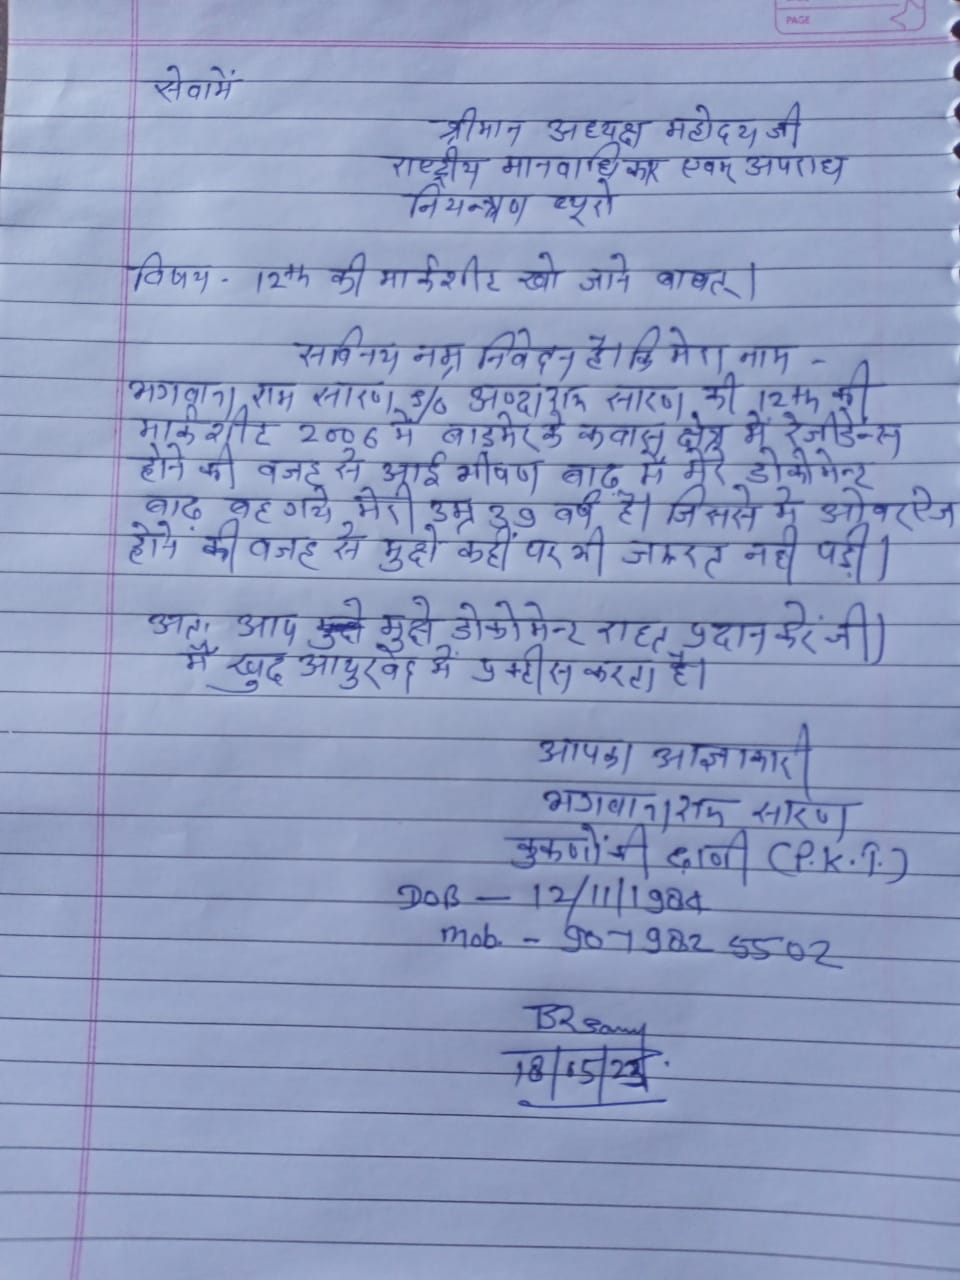 PAGE
सेवामें
श्रीमान अध्यक्ष महोदय जी
राष्ट्रीय मानवाधिकार एवम् अपराध
नियन्त्रण ब्यूरो
विषय - 12th की मार्कशीट खो जाने बाबत्।
सविनय नम्र निवेदन है। कि मेरा नाम -
भगवाना राम सारण S/o अणदाराम सारण की 12th की
मार्कशीट 2006 में बाड़मेर के कवास क्षेत्र में रेजीडेन्स
होने की वजह से आई भीषण बाढ़ में मेरे डोकोमेन्ट
बाढ़ बह गये मेरी उम्र 39 वर्ष है। जिससे मे ओवरऐज
होने की वजह से मुझे कहीं पर भी जरूरत नही पड़ी।
अतः आप मुझे डोकोमेन्ट राहत प्रदान करें जी।
मैं खुद आयुरवेद में प्रक्टीस करता है।
आपका आज्ञाकारी
भगवाना राम सारण
कुकणों की ढाणी (P.K.T.)
DOB - 12/11/1984
mob. - 907982 5502
18/15/23